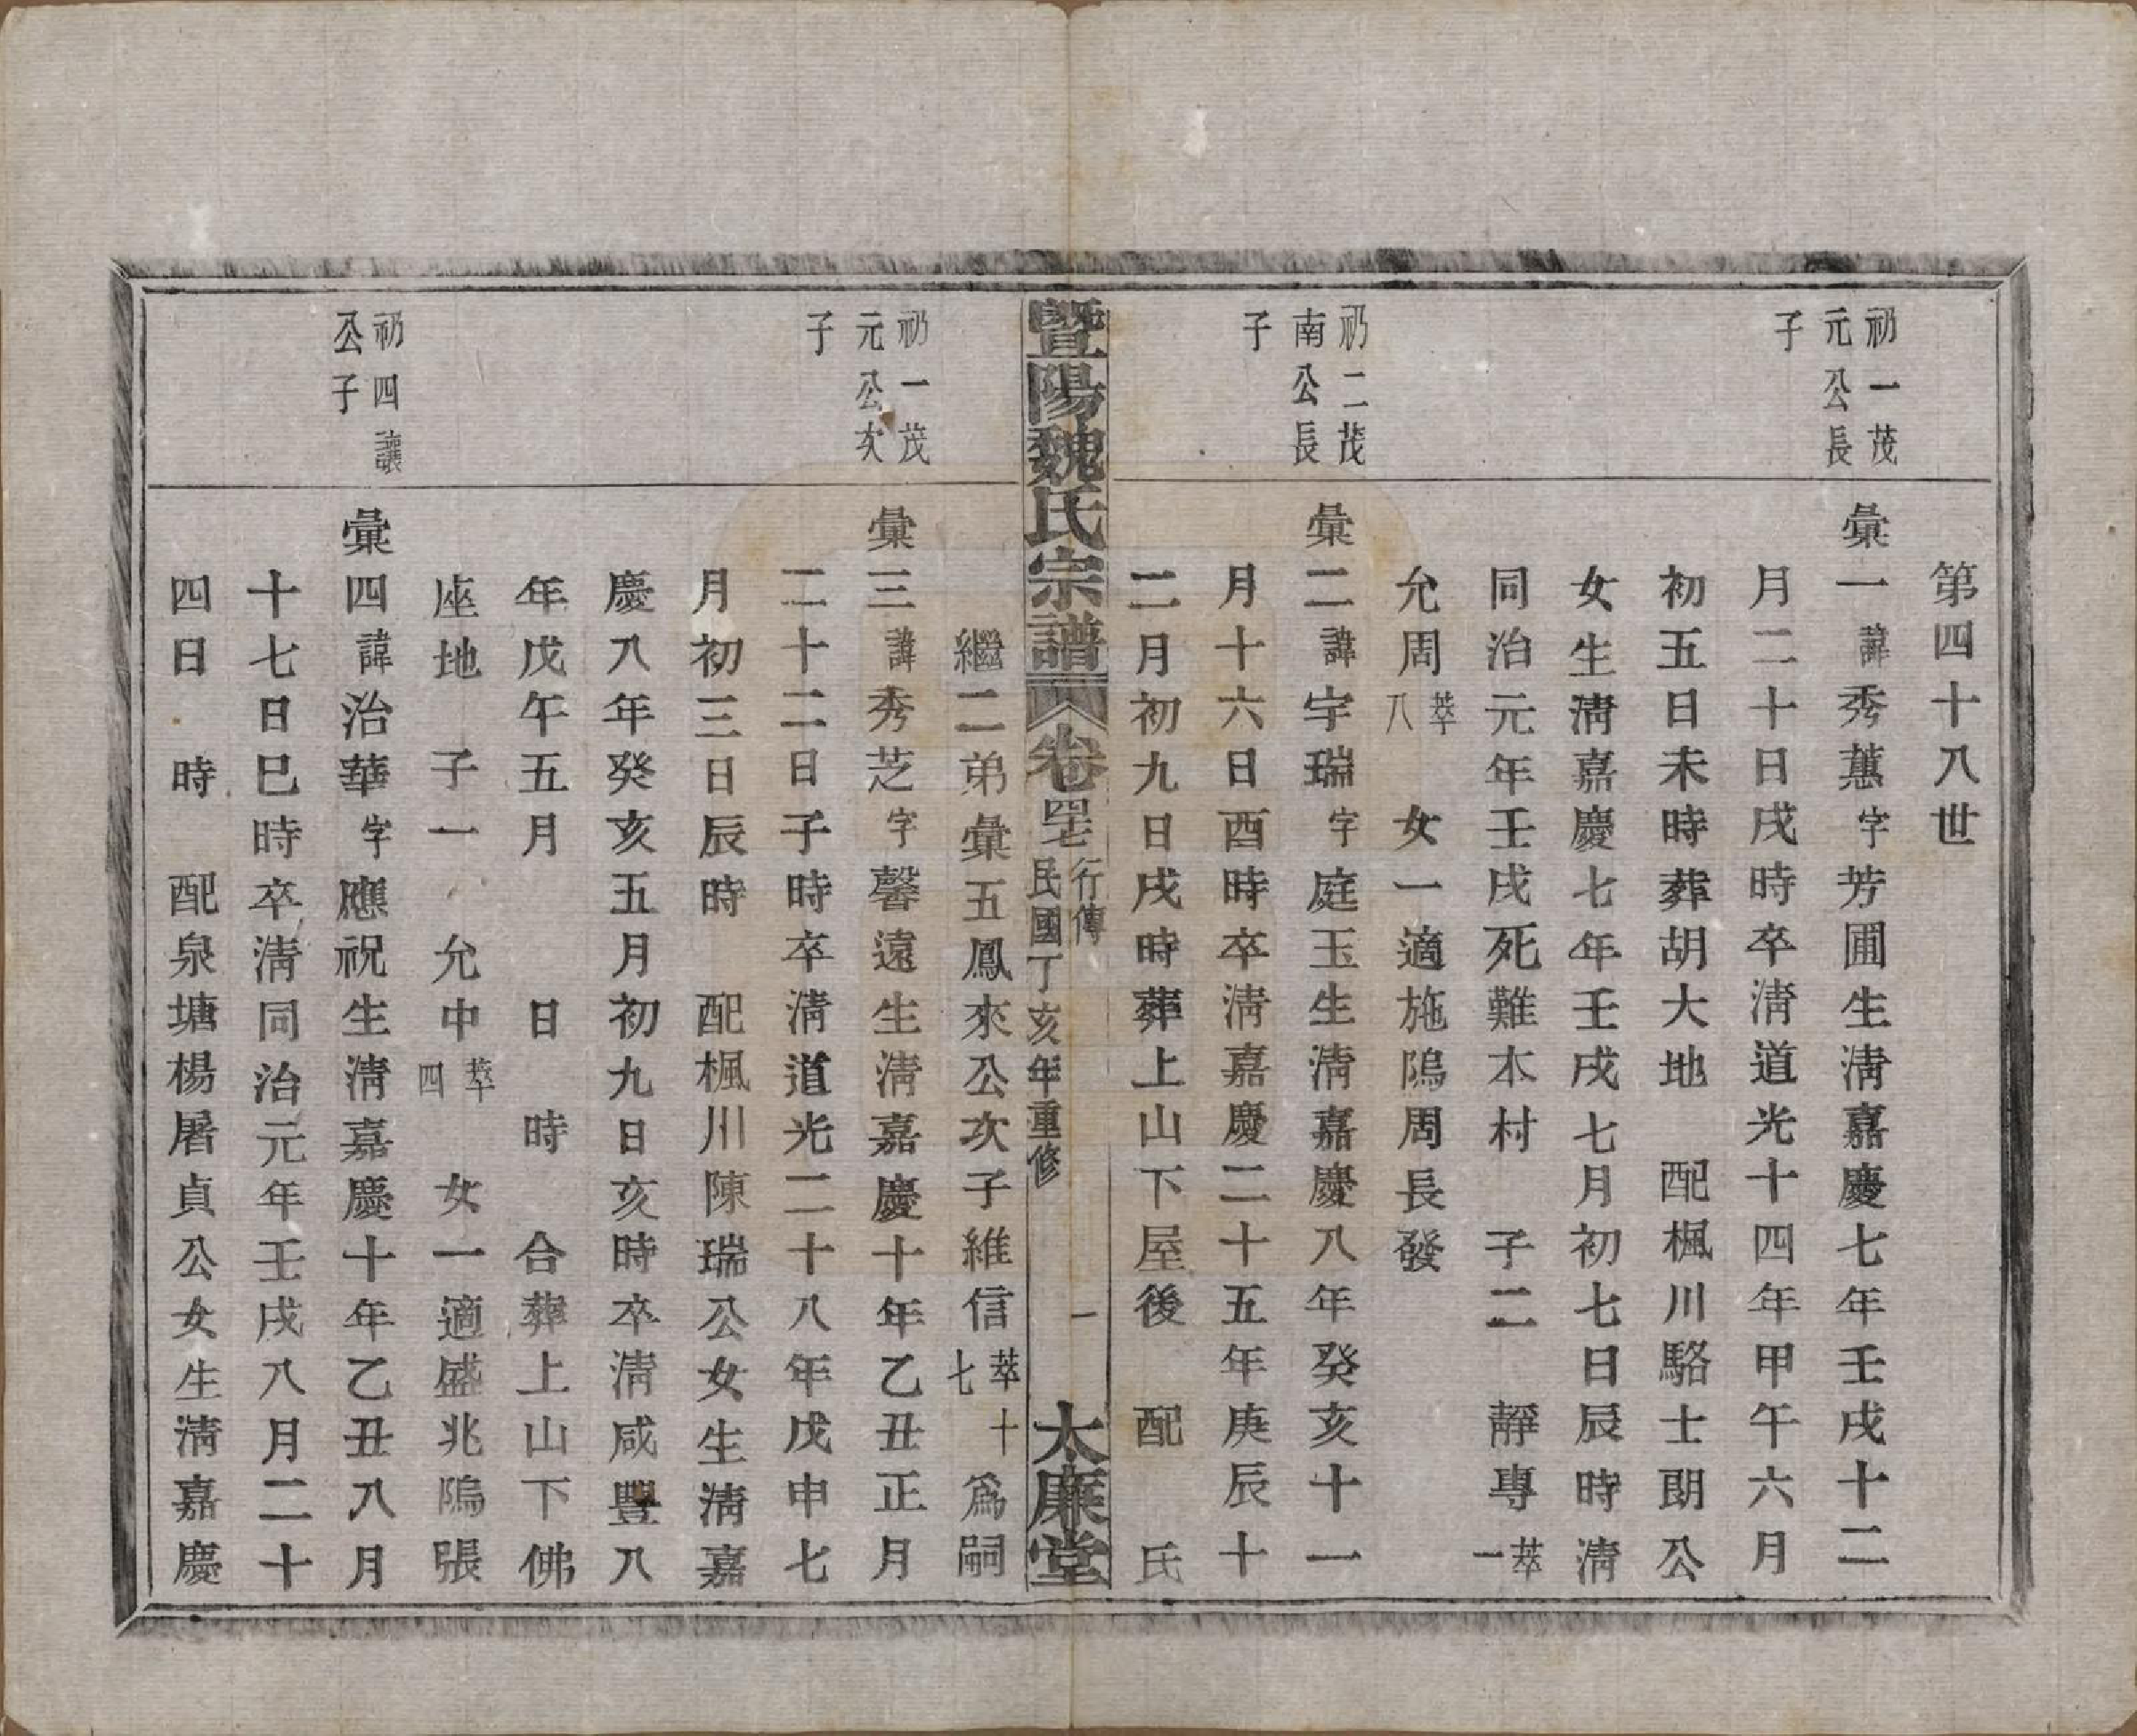 第四十八世
礽一茂
元公長
子
彙一諱秀蕙字芳圃生淸嘉慶七年壬戌十二
月二十日戌時卒淸道光十四年甲午六月
初五日未時葬胡大地　配楓川駱士朗公
女生淸嘉慶七年壬戌七月初七日辰時淸
同治元年壬戌死難本村　子二　靜專萃一
允周萃八　女一適施隖周長發
礽二茂
南公長
子
彙二諱宇瑞字庭玉生淸嘉慶八年癸亥十一
月十六日酉時卒淸嘉慶二十五年庚辰十
二月初九日戌時葬上山下屋後　配　氏
暨陽魏氏宗譜　卷 行傳 民國丁亥年重修　一　太廉堂
繼二弟彙五鳳來公次子維信萃十七爲嗣
礽一茂
元公次
子
彙三諱秀芝字馨遠生淸嘉慶十年乙丑正月
二十二日子時卒淸道光二十八年戊申七
月初三日辰時　配楓川陳瑞公女生淸嘉
慶八年癸亥五月初九日亥時卒淸咸豐八
年戊午五月　日　時　合葬上山下佛
座地　子一　允中萃四　女一適盛兆隖張
礽四讓
公子
彙四諱治華字應祝生淸嘉慶十年乙丑八月
十七日巳時卒淸同治元年壬戌八月二十
四日　時　配泉塘楊屠貞公女生淸嘉慶